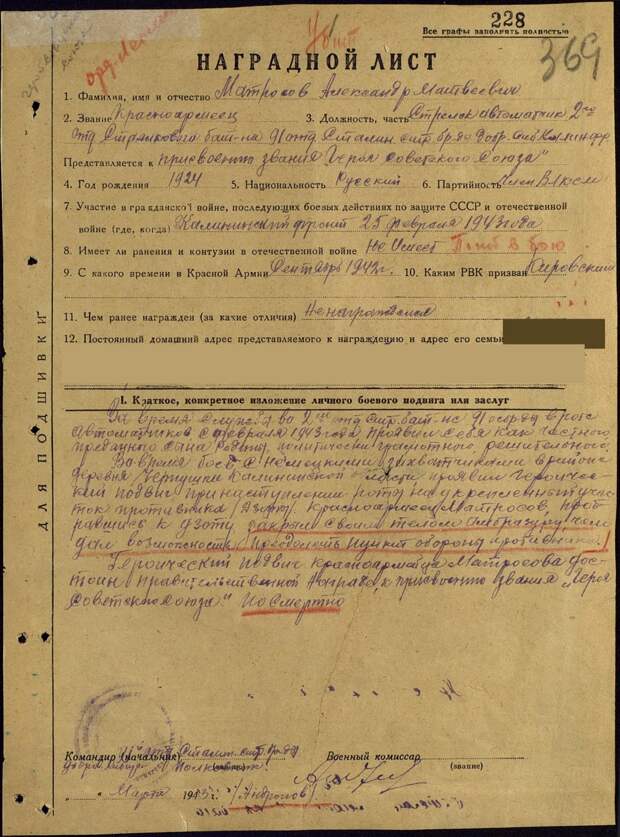 228
Все графы заполнять полностью
369
орд. Ленин
НАГРАДНОЙ ЛИСТ
1. Фамилия, имя и отчество Матросов Александр Матвеевич
2. Звание Красноармеец 3. Должность, часть Стрелок автоматчик 2го
отд Стрелкового бат-на 91 отд. Сталин стр. бр.
Представляется к присвоению звания "Героя Советского Союза"
4. Год рождения 1924 5. Национальность Русский 6. Партийность Член ВЛКСМ
7. Участие в гражданской войне, последующих боевых действиях по защите СССР и отечественной
войне (где, когда) Калининский фронт 25 февраля 1943 года
8. Имеет ли ранения и контузии в отечественной войне Не имеет Погиб в бою
9. С какого времени в Красной Армии Сентябрь 1942г. 10. Каким РВК призван Кировским
11. Чем ранее награжден (за какие отличия) Не награждался
12. Постоянный домашний адрес представляемого к награждению и адрес его семьи
I. Краткое, конкретное изложение личного боевого подвига или заслуг
За время службы во 2 отд. стр. бат-не 91 осбр в роте
автоматчиков с февраля 1943 года проявил себя как честного
преданного сына Родины, политически грамотного, решительного.
Во время боев с немецкими захватчиками в районе
деревня Чернушки Калининской области проявил героичес-
кий подвиг при наступлении роты на укрепленный участ-
ок противника (дзоты). Красноармеец Матросов, проб-
равшись к дзоту закрыл своим телом амбразуру чем
дал возможность преодолеть пункт обороны противника.
Героический подвиг красноармейца Матросова дос-
тоин правительственной награды, к присвоению звания "Героя
Советского Союза" Посмертно
ДЛЯ ПОДШИВКИ
Командир (начальник) 91 отд Сталин. стр. бр-ды
Полковник
Военный комиссар
(звание)
Марта 1943г. /Андронов/